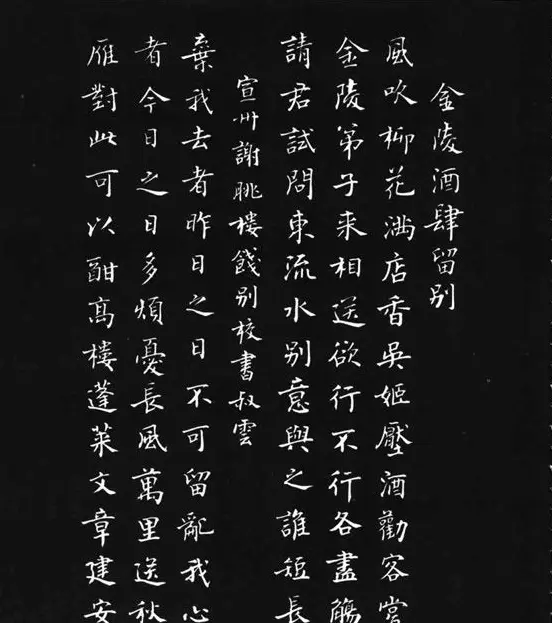 金陵酒肆留别
風吹柳花満店香吳姬壓酒勸客嘗
金陵第子来相送欲行不行各盡觴
請君試問東流水别意與之誰短長
宣州謝眺樓餞别校書叔雲
棄我去者昨日之日不可留亂我心
者今日之日多煩憂長風萬里送秋
雁對此可以酣髙樓蓬萊文章建安